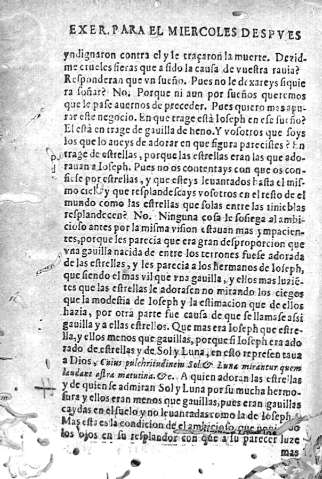 EXER. PARA EL MIERCOLES DESPVES
yndignaron contra el y le traçaron la muerte. Dezid-
me crueles fieras que a sido la causa de vuestra rauia?
Responderan que vn sueño. Pues no le dexareys si quie
ra soñar? No. Porque ni aun por sueños queremos
que le pase auernos de preceder. Pues quiero mas apu
rar este negocio. En que trage està Ioseph en ese sueño?
El està en trage de gauilla de heno. Y vosotros que soys
los que lo aueys de adorar en que figura parecistes? En
trage de estrellas, porque las estrellas eran las que ado-
rauan a Ioseph. Pues no os contentays con que os con-
fiese por estrellas, y que esteys leuantados hasta el mis-
mo cielo y que resplandescays vosotros en el resto de el
mundo como las estrellas que solas entre las tinieblas
resplandecen? No. Ninguna cosa le sosiega al ambi-
cioso antes por la misma vision estauan mas ympacien-
tes, porque les parecia que era gran desproporcion que
vna gauilla nacida de entre los terrones fuese adorada
de las estrellas, y les parecia a los hermanos de Ioseph,
que siendo el mas vil que vna gauilla, y ellos mas luziē-
tes que las estrellas le adorasen no mirando los ciegos
que la modestia de Ioseph y la estimacion que de ellos
hazia, por otra parte fue causa de que se llamase assi
gauilla y a ellas estrellas. Que mas era Ioseph que estre-
lla, y ellos menos que gauillas, porque si Ioseph era ado
rado de estrellas y de Sol y Luna, en esto representaua
a Dios, Cuius pulchritudinem Sol & Luna mirantur quem
laudant astra matutina. &c. A quien adoran las estrellas
y de quien se admiran Sol y Luna por su mucha hermo-
sura y ellos eran menos que gauillas, pues eran gauillas
caydas en el suelo y no leuantadas como la de Ioseph.
Mas esta es la condicion de el ambicioso, que poniendo
los ojos en su resplandor con que a su parecer luze
mas